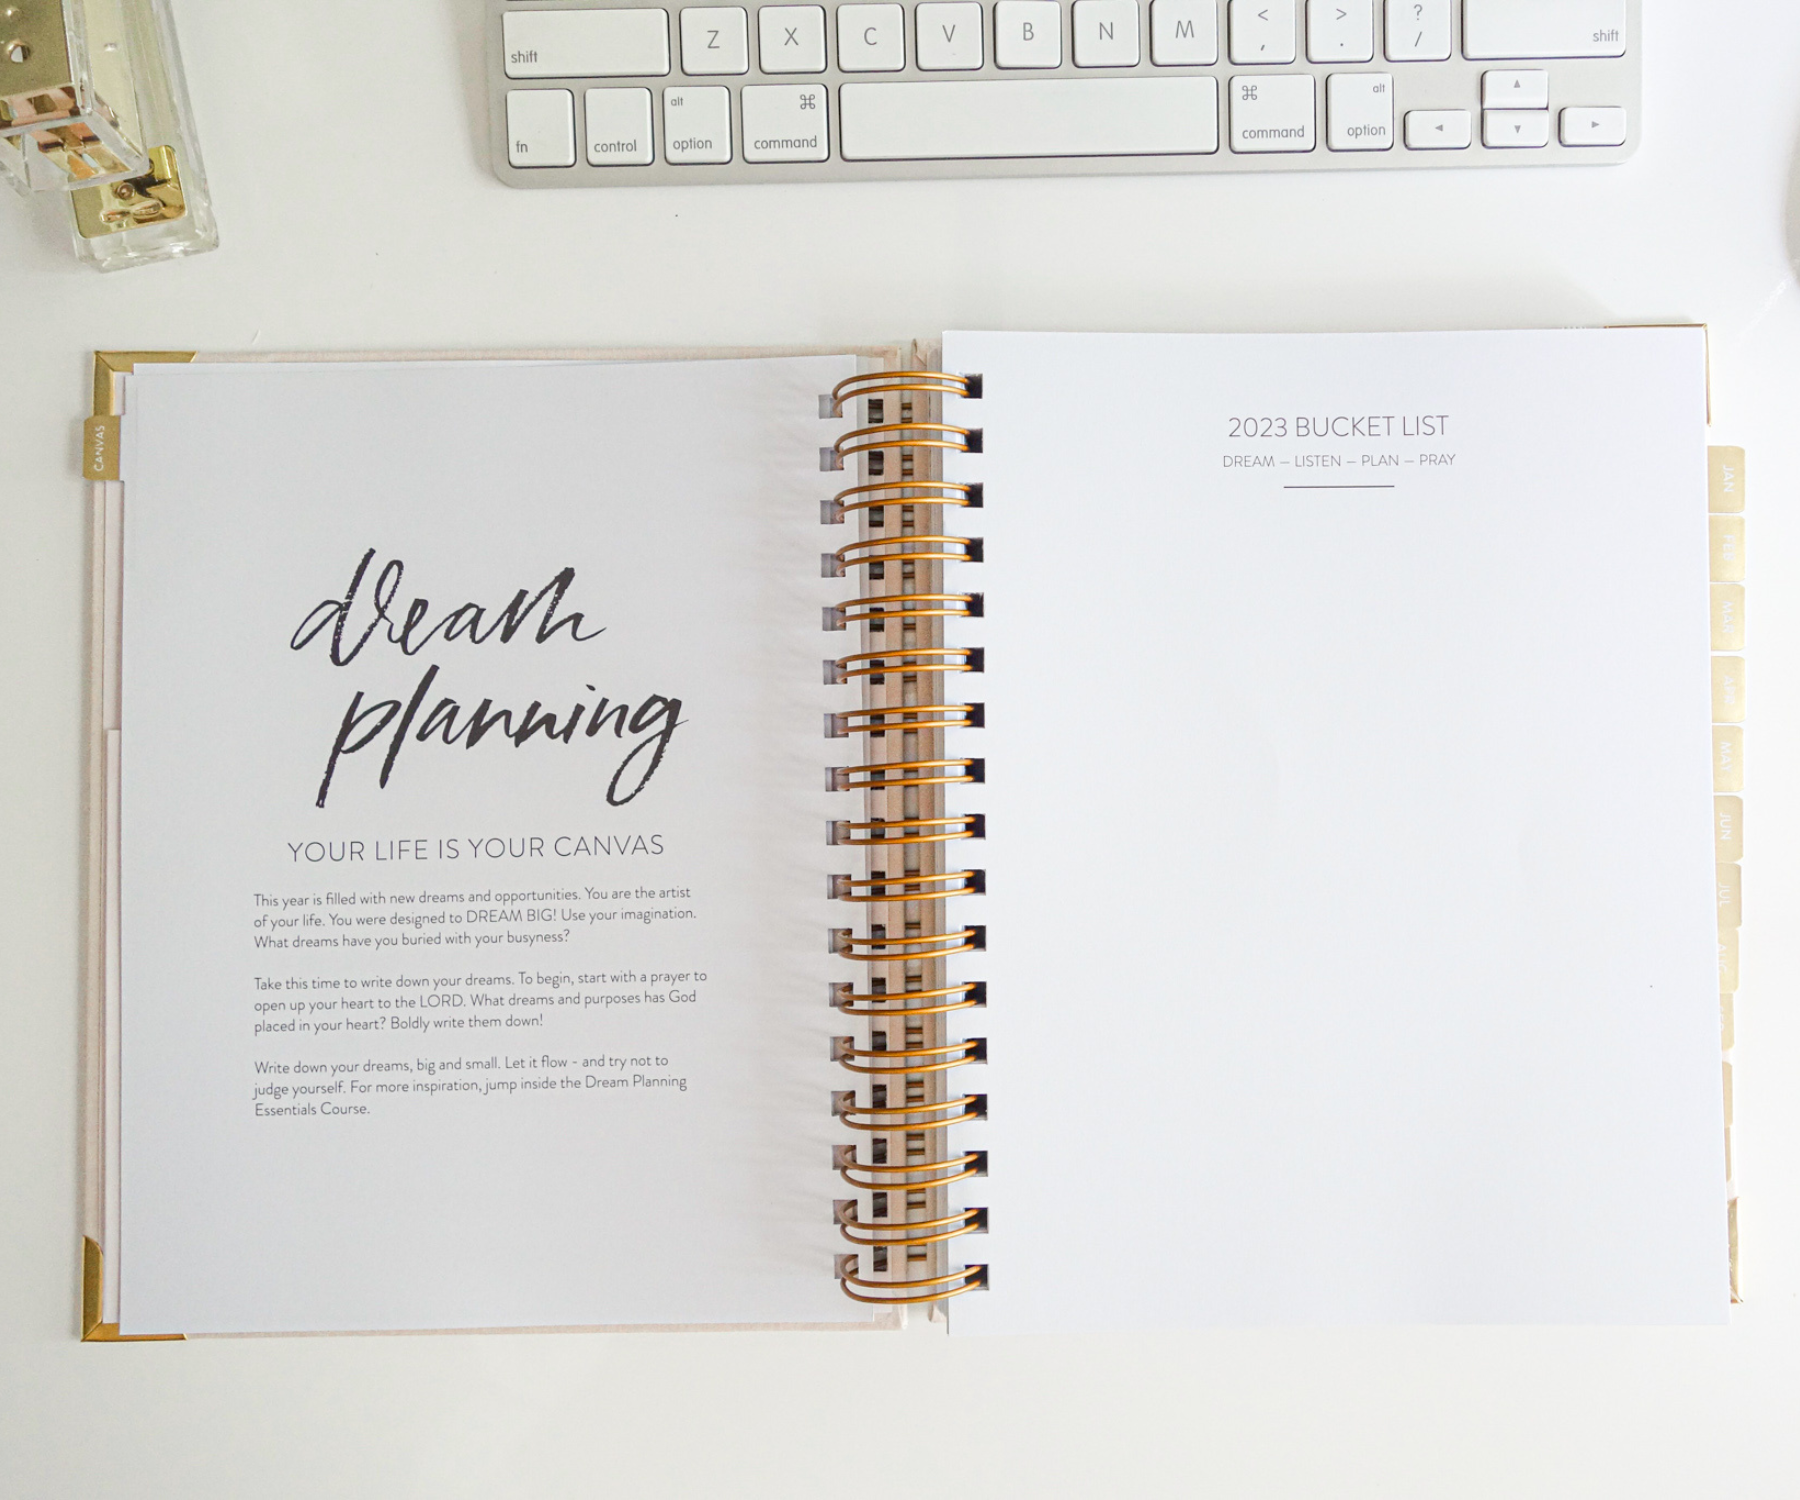 Z X C V B N M < , > . ? /
shift shift
fn control alt option ⌘ command ⌘ command alt option
CANVAS
dream
planning
YOUR LIFE IS YOUR CANVAS
This year is filled with new dreams and opportunities. You are the artist
of your life. You were designed to DREAM BIG! Use your imagination.
What dreams have you buried with your busyness?
Take this time to write down your dreams. To begin, start with a prayer to
open up your heart to the LORD. What dreams and purposes has God
placed in your heart? Boldly write them down!
Write down your dreams, big and small. Let it flow - and try not to
judge yourself. For more inspiration, jump inside the Dream Planning
Essentials Course.
2023 BUCKET LIST
DREAM – LISTEN – PLAN – PRAY
JAN
FEB
MAR
APR
MAY
JUN
JUL
AUG